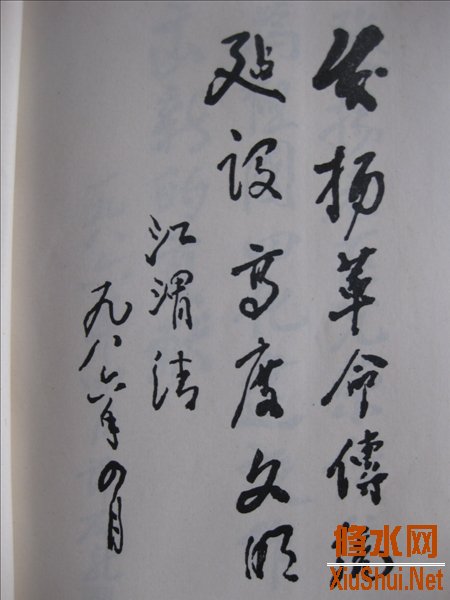 发扬革命傳統
建设高度文明
江渭清
一九八六年四月
修水网
XiuShui.Net